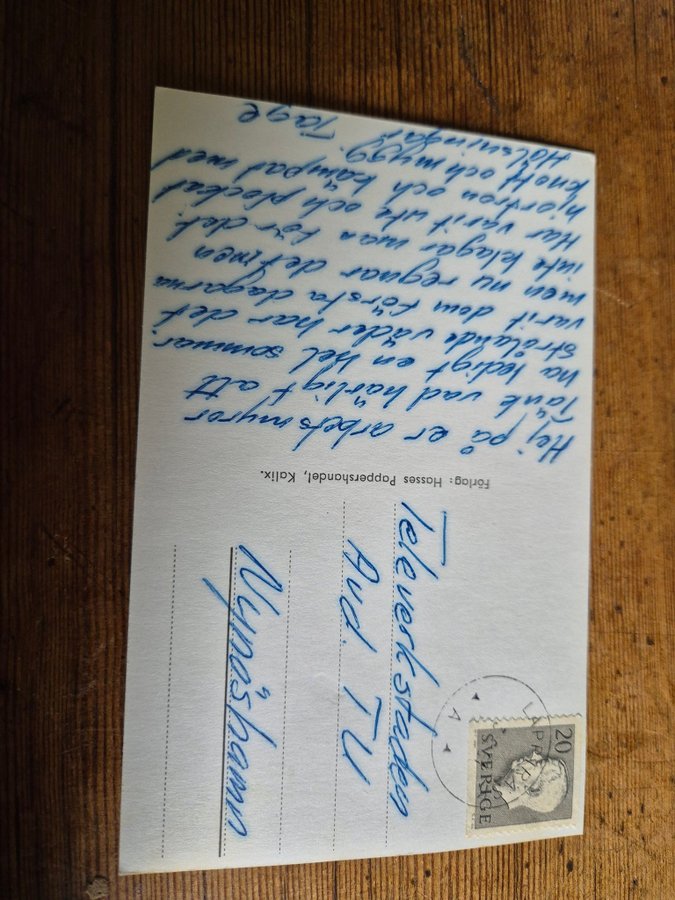 Hej på er arbetsmyror
Tänk vad härligt att
ha ledigt en hel sommar.
Strålande väder har det
varit dom första dagarna
men nu regnar det men
inte klagar man för det.
Har varit ute och plockat
hjortron och kämpad med
knott och mygg.
Hälsningar Tage
Förlag: Hasses Pappershandel, Kalix.
Televerkstaden
Avd. TU
Nynäshamn
20
SVERIGE
LAPP
A